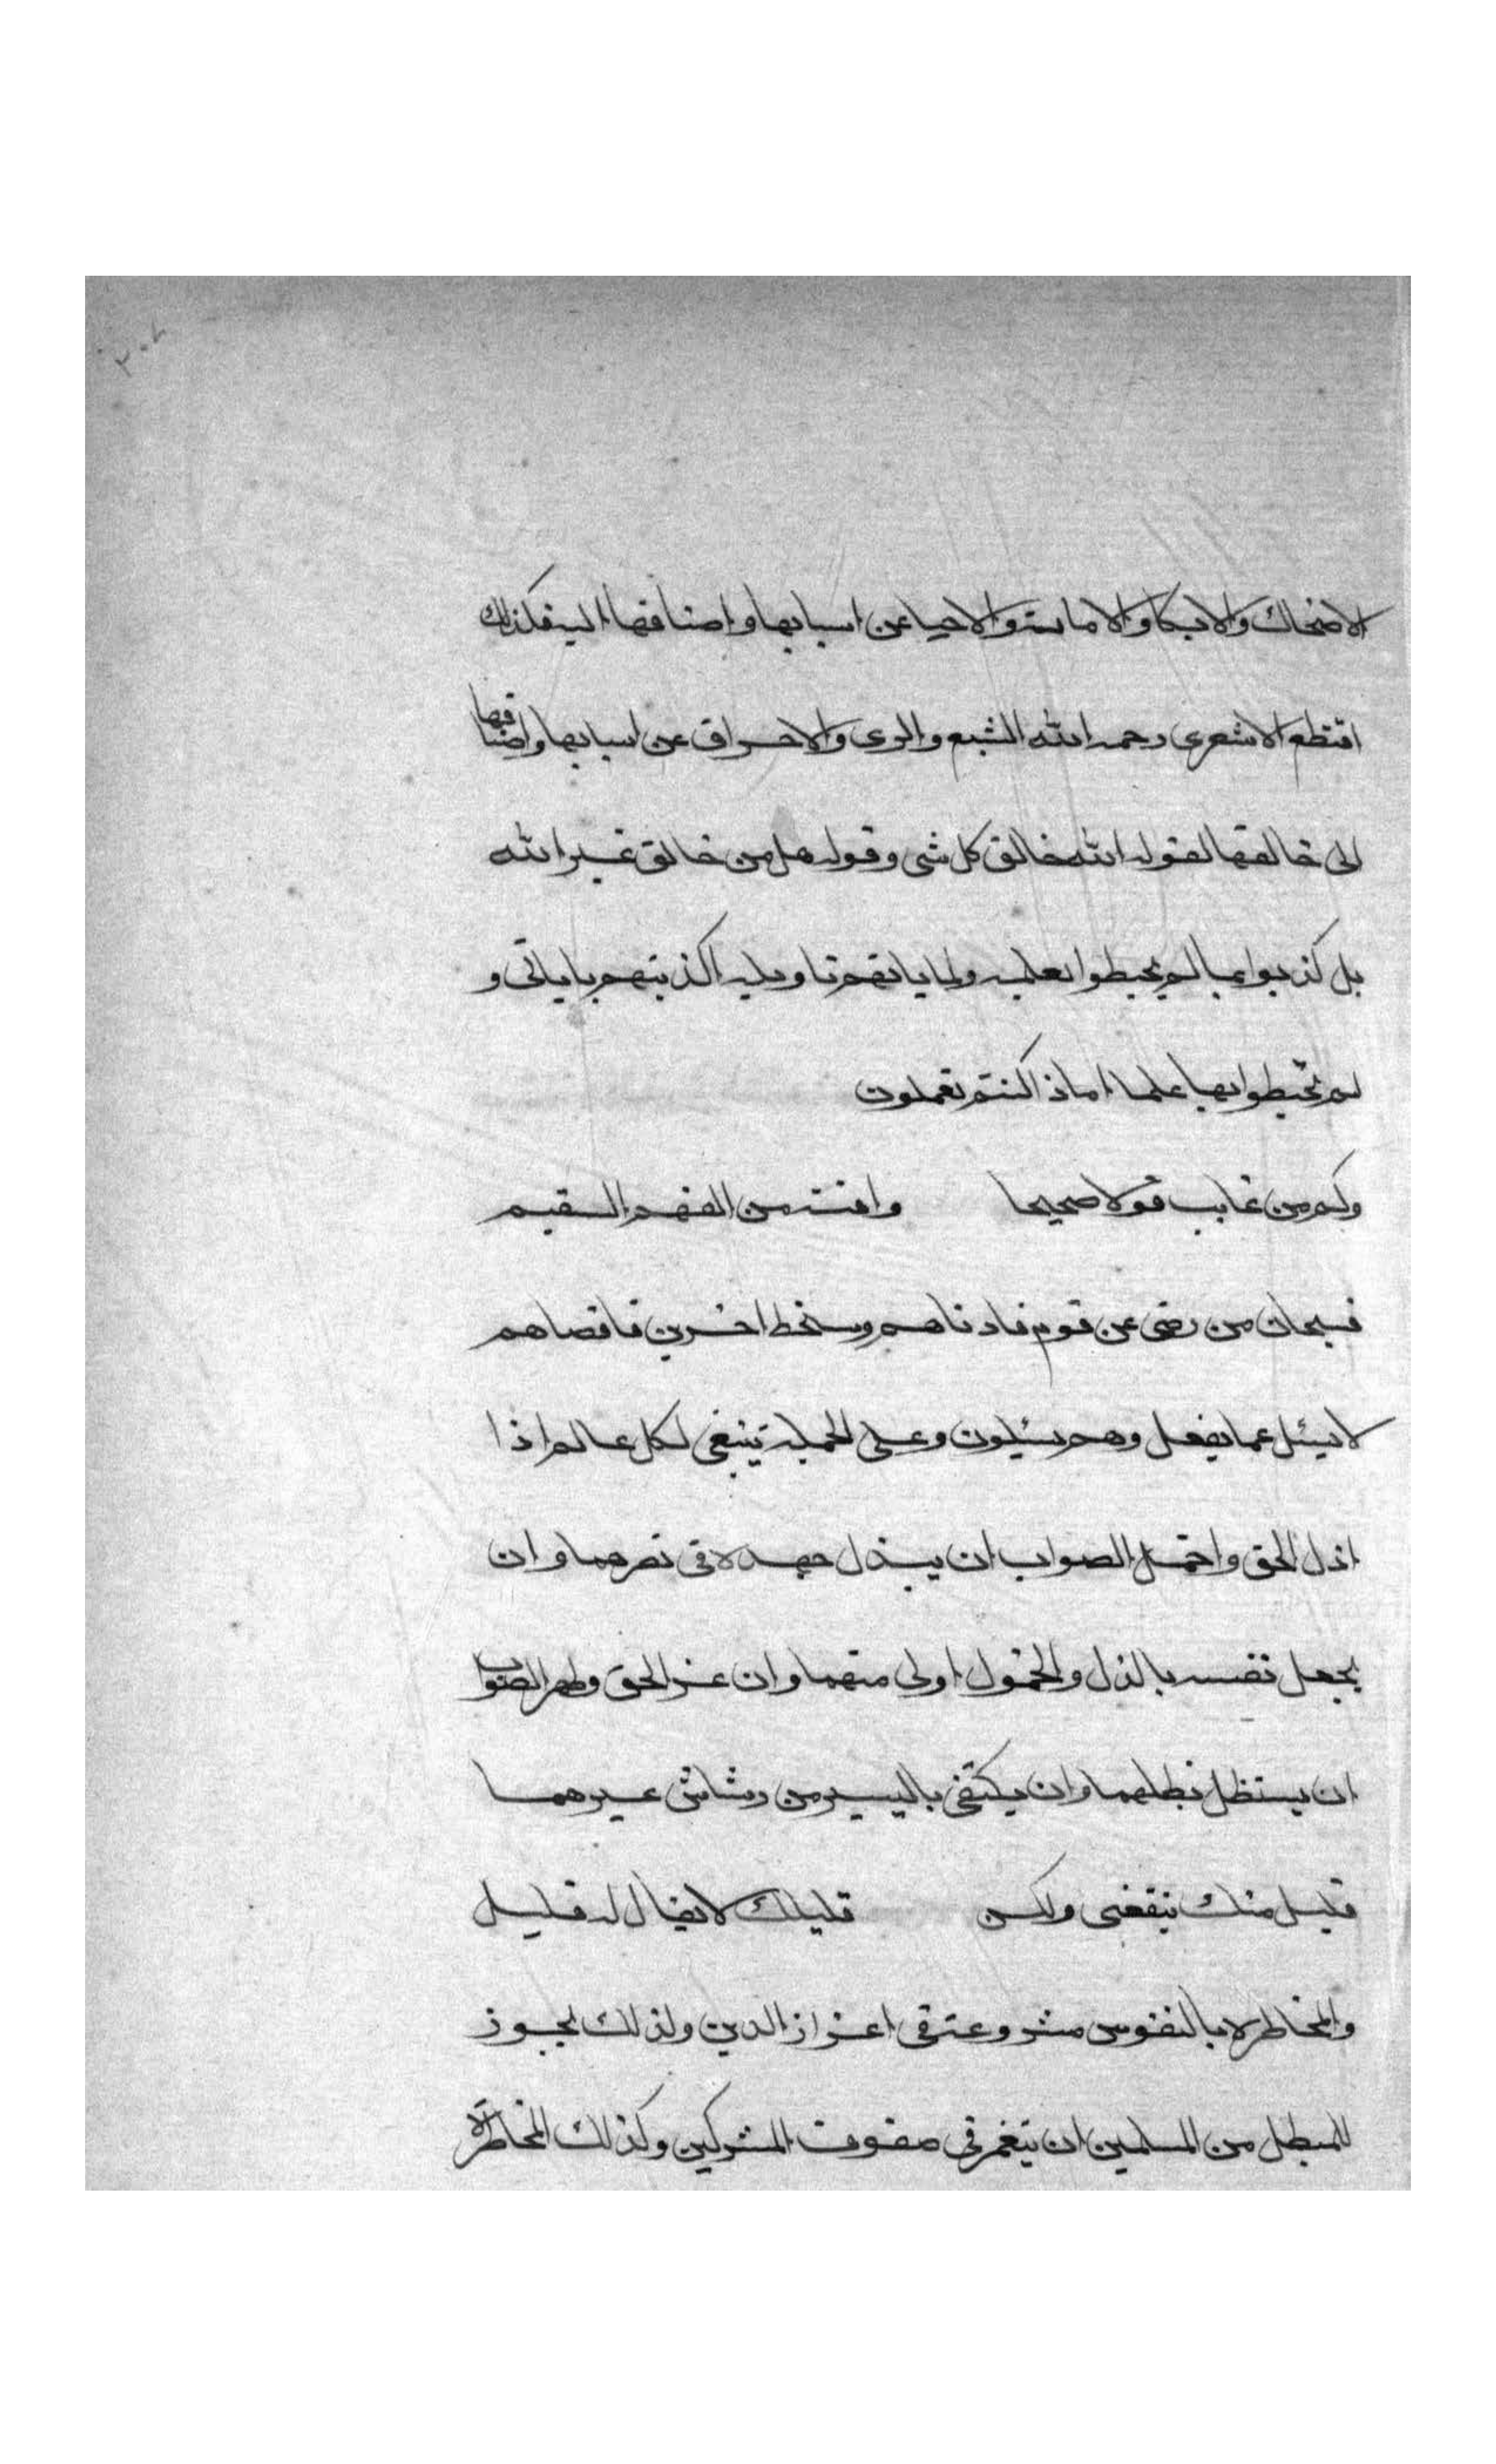 ٢٠٨
الاضحاك والابكا والاماتة والاحيا عن اسبابها واضافها اليه فكذلك
اقتطع الاشعرى رحمه الله الشبع والرى والاحراق عن اسبابها واضافها
الى خالقها لقوله الله خالق كل شى وقوله هل من خالق غير الله
بل كذبوا بما لم يحيطوا بعلمه ولما ياتهم تاويله اكذبتهم باياتى و
لم تحيطوا بها علما اما ذا كنتم تعملون
وكم من غايب قولا صحيحا وافته من الفهم السقيم
فسبحان من رضى عن قوم فادناهم وسخط اخرين فاقصاهم
لا يسئل عما يفعل وهم يسئلون وعلى الجملة ينبغى لكل عالم اذا
اذل الحق واخمل الصواب ان يبذل جهده فى نصرهما وان
يجعل نفسه بالذل والخمول اولى منهما وان عز الحق وظهر الصواب
ان يستظل بظلهما وان يكتفى باليسير من رشاش غيرهما
قليل منك ينفعنى ولكن قليلك لا يقال له قليل
والمخاطرة بالنفوس مشروعة فى اعزاز الدين ولذلك يجوز
للبطل من المسلمين ان ينغمر فى صفوف المشركين وكذلك المخاطرة